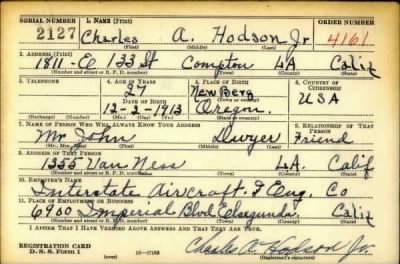 SERIAL NUMBER 1. NAME (Print) ORDER NUMBER
2127 Charles A. Hodson Jr 4161
(First) (Middle) (Last)
2. ADDRESS (Print)
1811-E 133 St Compton LA Calif
(Number and street or R. F. D. number) (Town) (County) (State)
3. TELEPHONE 4. AGE IN YEARS 5. PLACE OF BIRTH 6. COUNTRY OF CITIZENSHIP
27 New Berg
DATE OF BIRTH (Town or county)
12-2-1913 Oregon USA
(Exchange) (Number) (Mo.) (Day) (Yr.) (State or country)
7. NAME OF PERSON WHO WILL ALWAYS KNOW YOUR ADDRESS 8. RELATIONSHIP OF THAT PERSON
Mr John Dwyer Friend
(Mr., Mrs., Miss) (First) (Middle) (Last)
9. ADDRESS OF THAT PERSON
Van Ness L.A. Calif
(Number and street or R. F. D. number) (Town) (County) (State)
10. EMPLOYER'S NAME
Interstate Aircraft & Eng. Co
11. PLACE OF EMPLOYMENT OR BUSINESS
6960 Imperial Blvd Elsegundo Calif
(Number and street or R. F. D. number) (Town) (County) (State)
I AFFIRM THAT I HAVE VERIFIED ABOVE ANSWERS AND THAT THEY ARE TRUE.
REGISTRATION CARD
D. S. S. Form 1 (over) Charles A Hodson Jr.
(Registrant's signature)